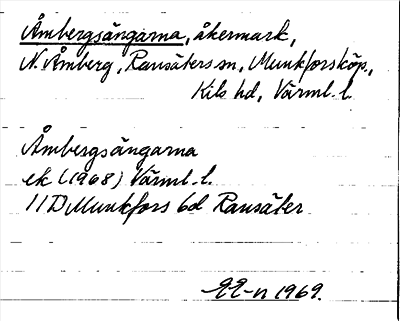 Åmbergsängarna, åkermark,
N. Åmberg, Ransäters sn, Munkforsköp.,
Kils hd, Värml. l.
Åmbergsängarna
ek (1968) Värml. l.
11D Munkfors 6d Ransäter
EE-n 1969.